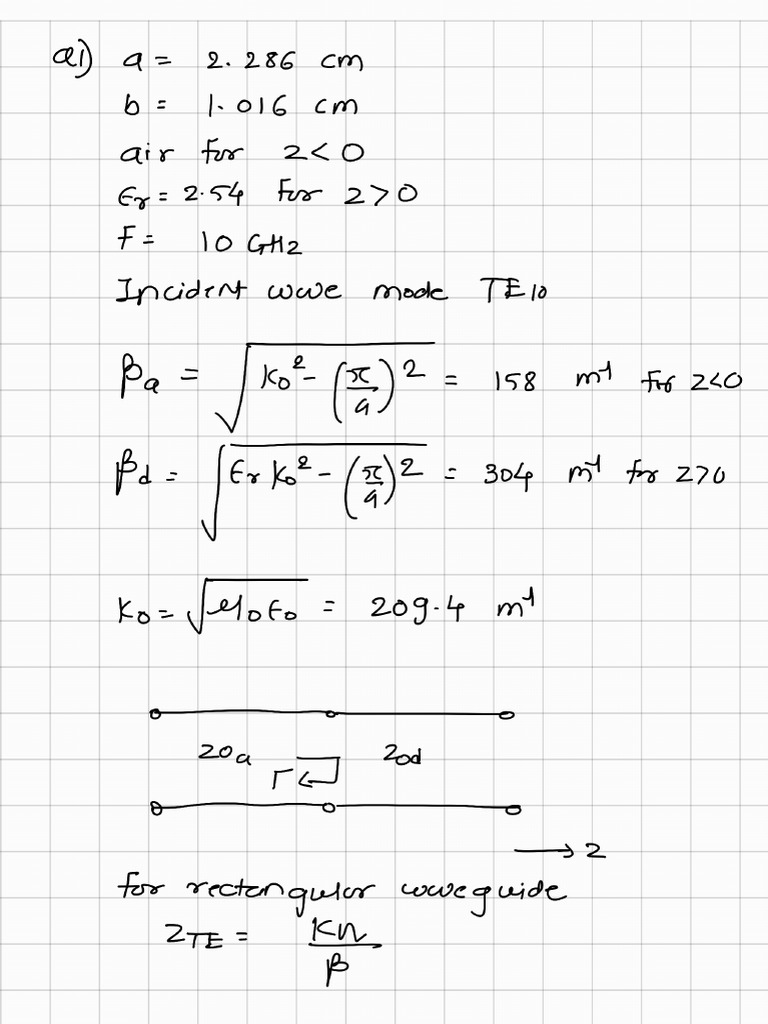 Q1) a = 2.286 cm
b = 1.016 cm
air for z<0
εr = 2.54 for z>0
F = 10 GHz
Incident wave mode TE10
βa = √(k0² - (π/a)²) = 158 m⁻¹ for z<0
βd = √(εr k0² - (π/a)²) = 304 m⁻¹ for z>0
K0 = √μ0ε0 = 209.4 m⁻¹
Z0a Γ Z0d
z
for rectangular waveguide
ZTE = Kη/β